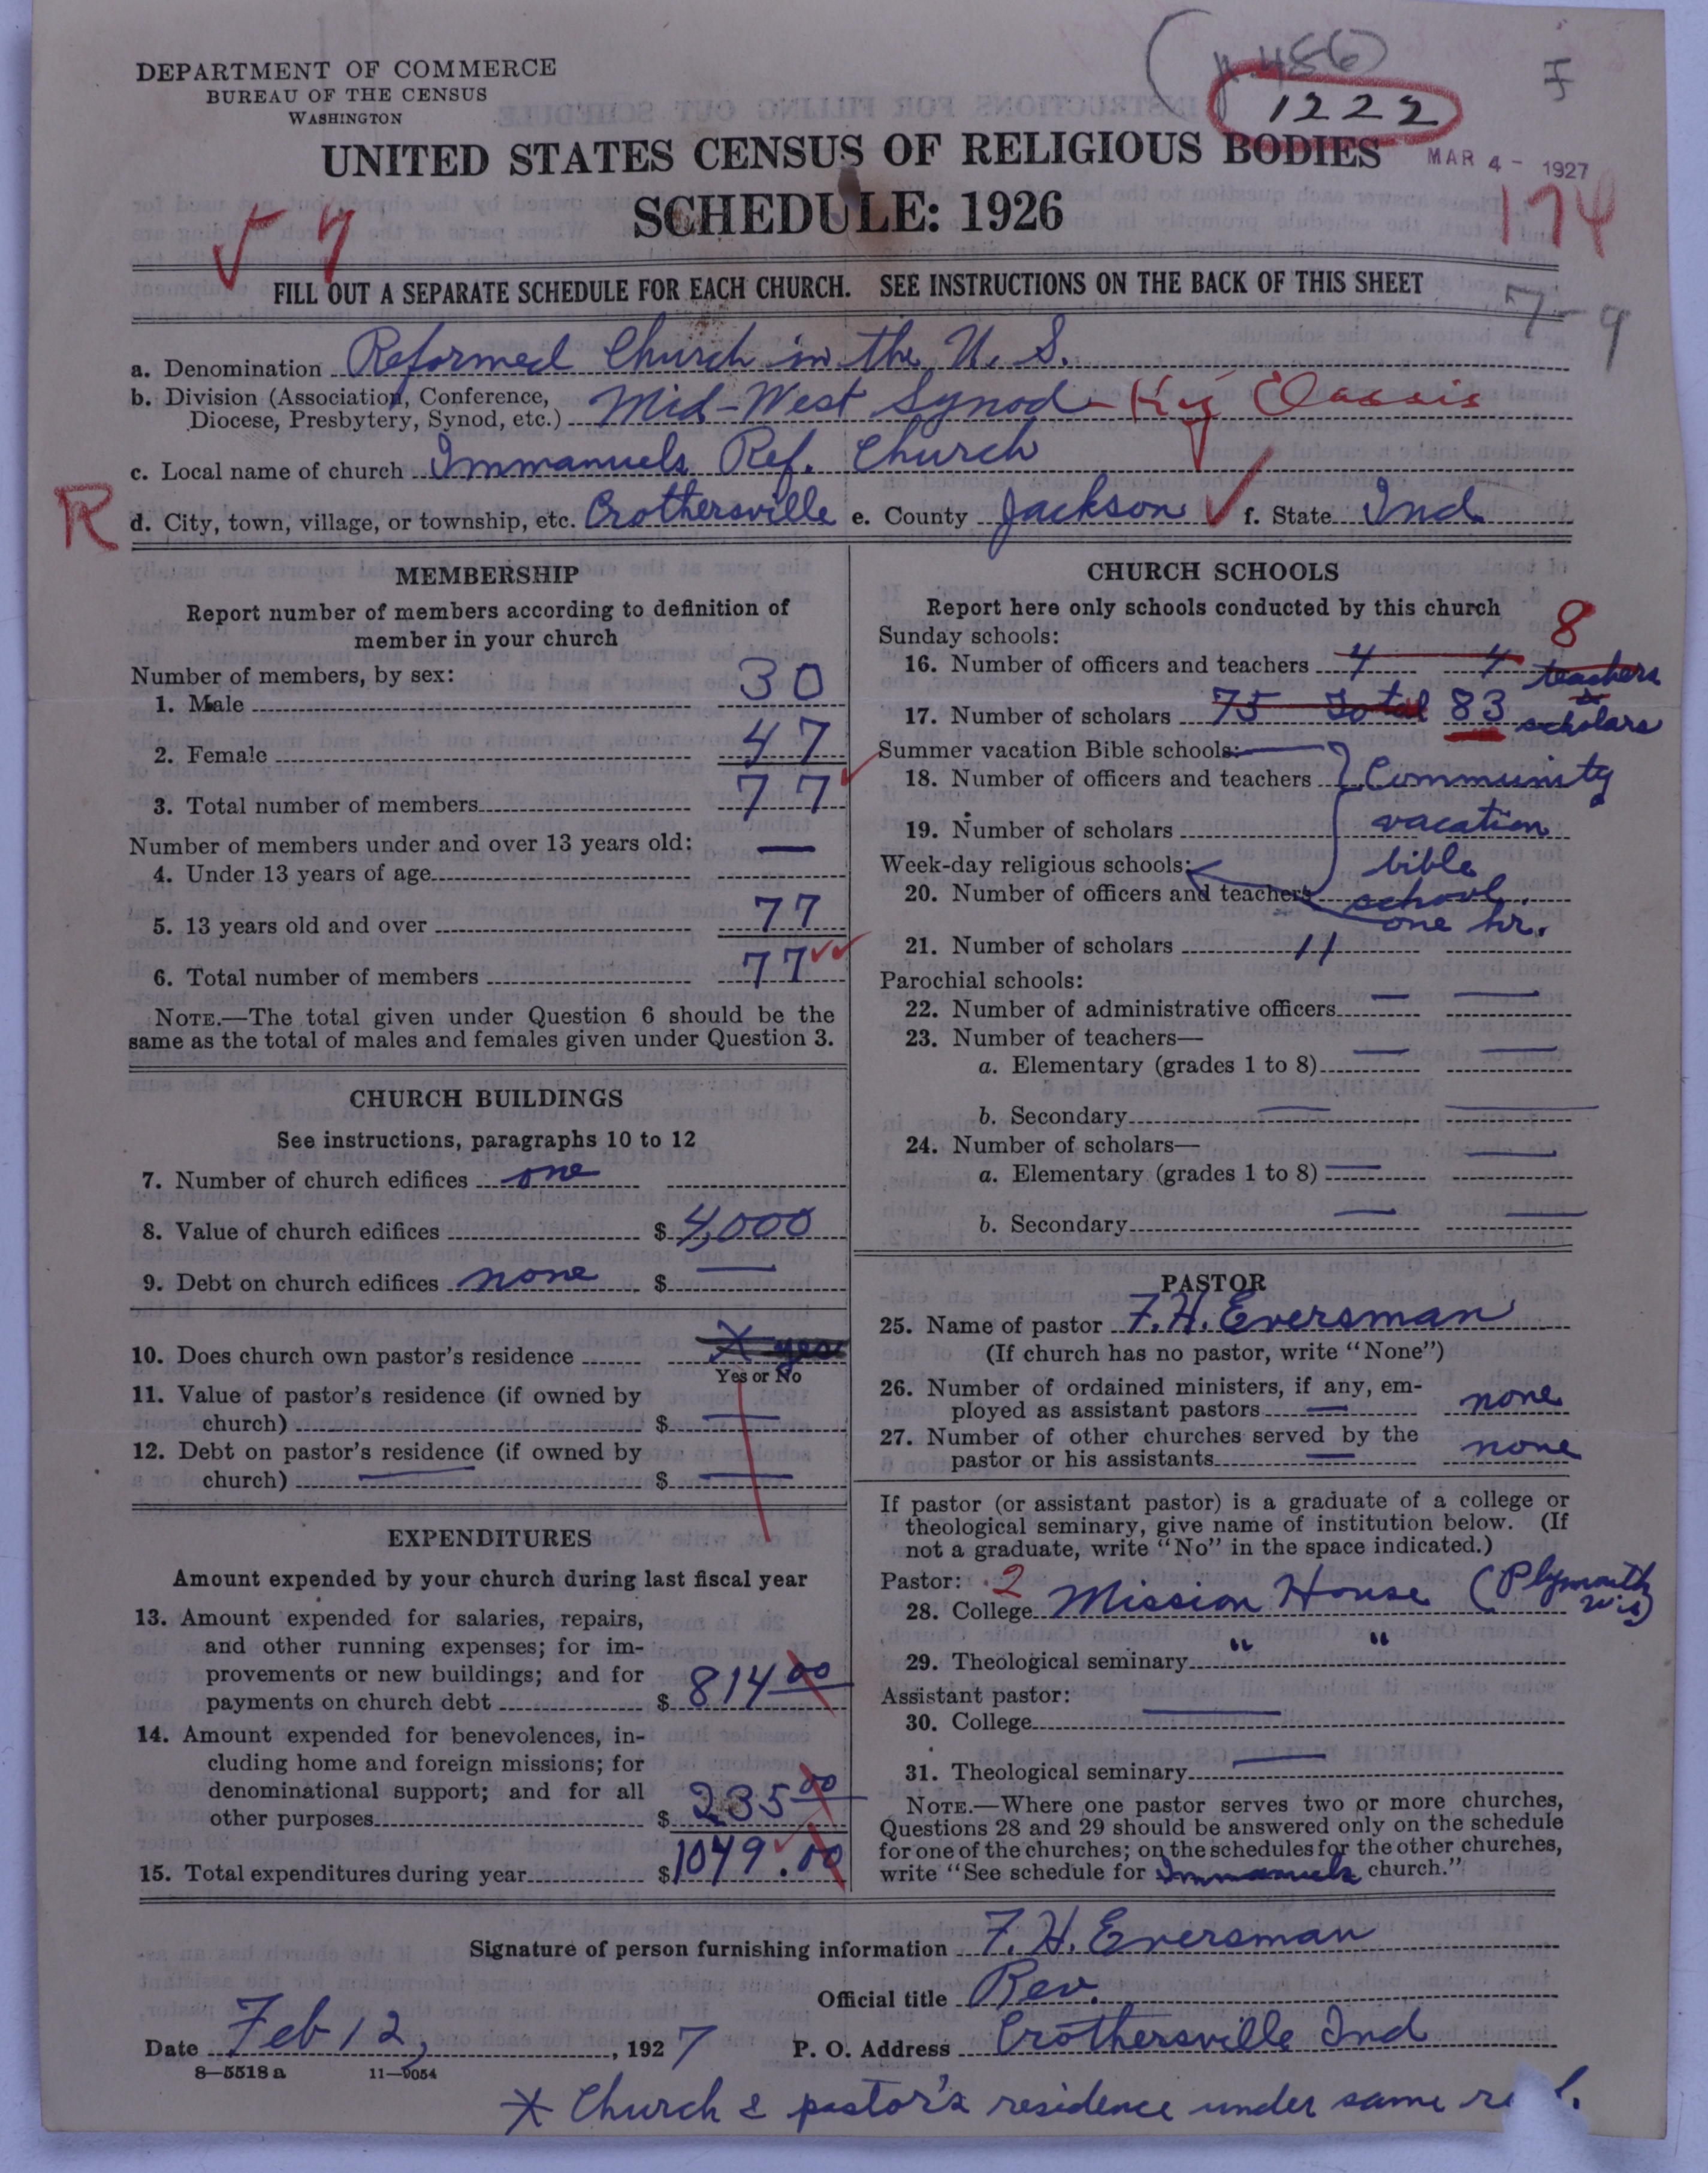 (p. 486)
DEPARTMENT OF COMMERCE
BUREAU OF THE CENSUS
WASHINGTON
1222
UNITED STATES CENSUS OF RELIGIOUS BODIES
MAR 4 - 1927
SCHEDULE: 1926
174
7
FILL OUT A SEPARATE SCHEDULE FOR EACH CHURCH. SEE INSTRUCTIONS ON THE BACK OF THIS SHEET
7-9
a. Denomination Reformed Church in the U. S.
b. Division (Association, Conference, Diocese, Presbytery, Synod, etc.) Mid-West Synod - Ky Classis
c. Local name of church Immanuels Ref. Church
R
d. City, town, village, or township, etc. Crothersville e. County Jackson f. State Ind.
MEMBERSHIP
Report number of members according to definition of
member in your church
Number of members, by sex:
1. Male 30
2. Female 47
3. Total number of members 77
Number of members under and over 13 years old:
4. Under 13 years of age —
5. 13 years old and over 77
6. Total number of members 77
NOTE.—The total given under Question 6 should be the
same as the total of males and females given under Question 3.
CHURCH BUILDINGS
See instructions, paragraphs 10 to 12
7. Number of church edifices one
8. Value of church edifices $ 4,000
9. Debt on church edifices none $ —
10. Does church own pastor's residence X yes
Yes or No
11. Value of pastor's residence (if owned by
church) $ —
12. Debt on pastor's residence (if owned by
church) — $ —
EXPENDITURES
Amount expended by your church during last fiscal year
13. Amount expended for salaries, repairs,
and other running expenses; for im-
provements or new buildings; and for
payments on church debt $ 814 00
14. Amount expended for benevolences, in-
cluding home and foreign missions; for
denominational support; and for all
other purposes $ 235 00
15. Total expenditures during year $ 1049.00
CHURCH SCHOOLS
Report here only schools conducted by this church
Sunday schools:
8
16. Number of officers and teachers 4 4 teachers
&
17. Number of scholars 75 Total 83 scholars
Summer vacation Bible schools:
18. Number of officers and teachers Community
19. Number of scholars vacation
Week-day religious schools: bible
20. Number of officers and teachers school
one hr.
21. Number of scholars 11
Parochial schools:
22. Number of administrative officers — —
23. Number of teachers—
a. Elementary (grades 1 to 8) — —
b. Secondary — —
24. Number of scholars—
a. Elementary (grades 1 to 8) — —
b. Secondary — —
PASTOR
25. Name of pastor F. H. Eversman
(If church has no pastor, write "None")
26. Number of ordained ministers, if any, em-
ployed as assistant pastors — none
27. Number of other churches served by the
pastor or his assistants — none
If pastor (or assistant pastor) is a graduate of a college or
theological seminary, give name of institution below. (If
not a graduate, write "No" in the space indicated.)
Pastor: 2
28. College Mission House (Plymouth Wis)
29. Theological seminary " "
Assistant pastor:
30. College —
31. Theological seminary —
NOTE.—Where one pastor serves two or more churches,
Questions 28 and 29 should be answered only on the schedule
for one of the churches; on the schedules for the other churches,
write "See schedule for Immanuels church."
Signature of person furnishing information F. H. Eversman
Official title Rev.
Date Feb 12, 1927 P. O. Address Crothersville Ind
8—5518 a 11—9054
* Church & pastor's residence under same